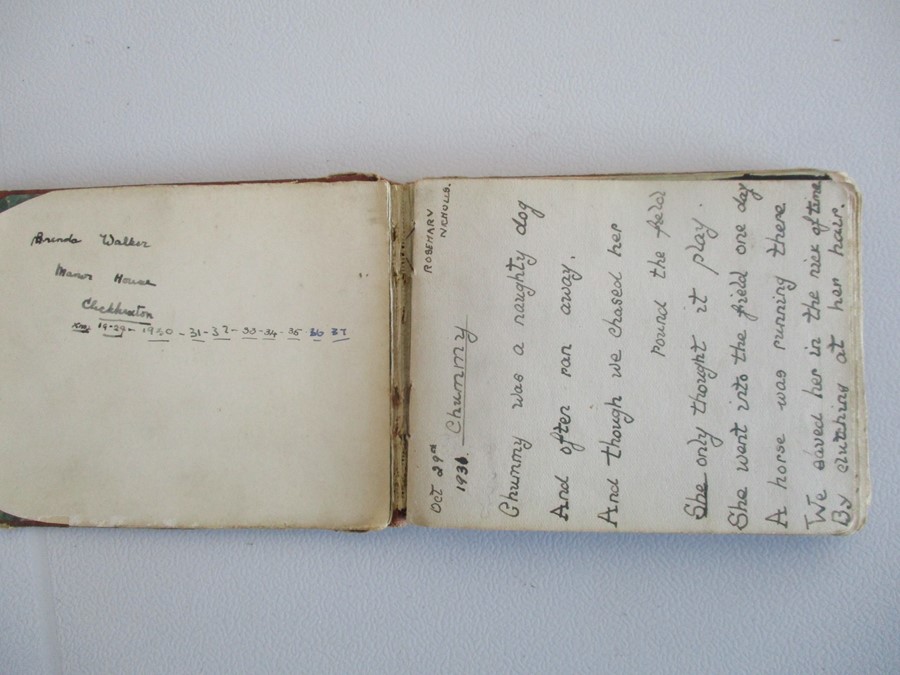 Brenda Walker
Manor House
Cleckheaton
Xmas 1929 - 1930 - 31 - 32 - 33 - 34 - 35 - 36 37
ROSEMARY
NICHOLLS.
Oct 29th
1936
Chummy
Chummy was a naughty dog
And often ran away.
And though we chased her
round the field
She only thought it play.
She went into the field one day
A horse was running there
We saved her in the nick of time
By clutching at her hair.